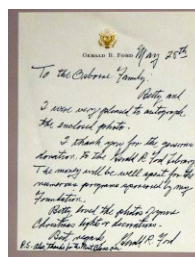 GERALD R. FORD
May 25th
To the Osborne Family:
Betty and
I were very pleased to autograph
the enclosed photo.
I thank you for the generous
donation to the Gerald R. Ford Library.
The money will be well spent for the
numerous programs sponsored by my
Foundation.
Betty loved the photos of your
Christmas lights or decorations.
Best regards,
Gerald R. Ford
P.S. Also thanks for the